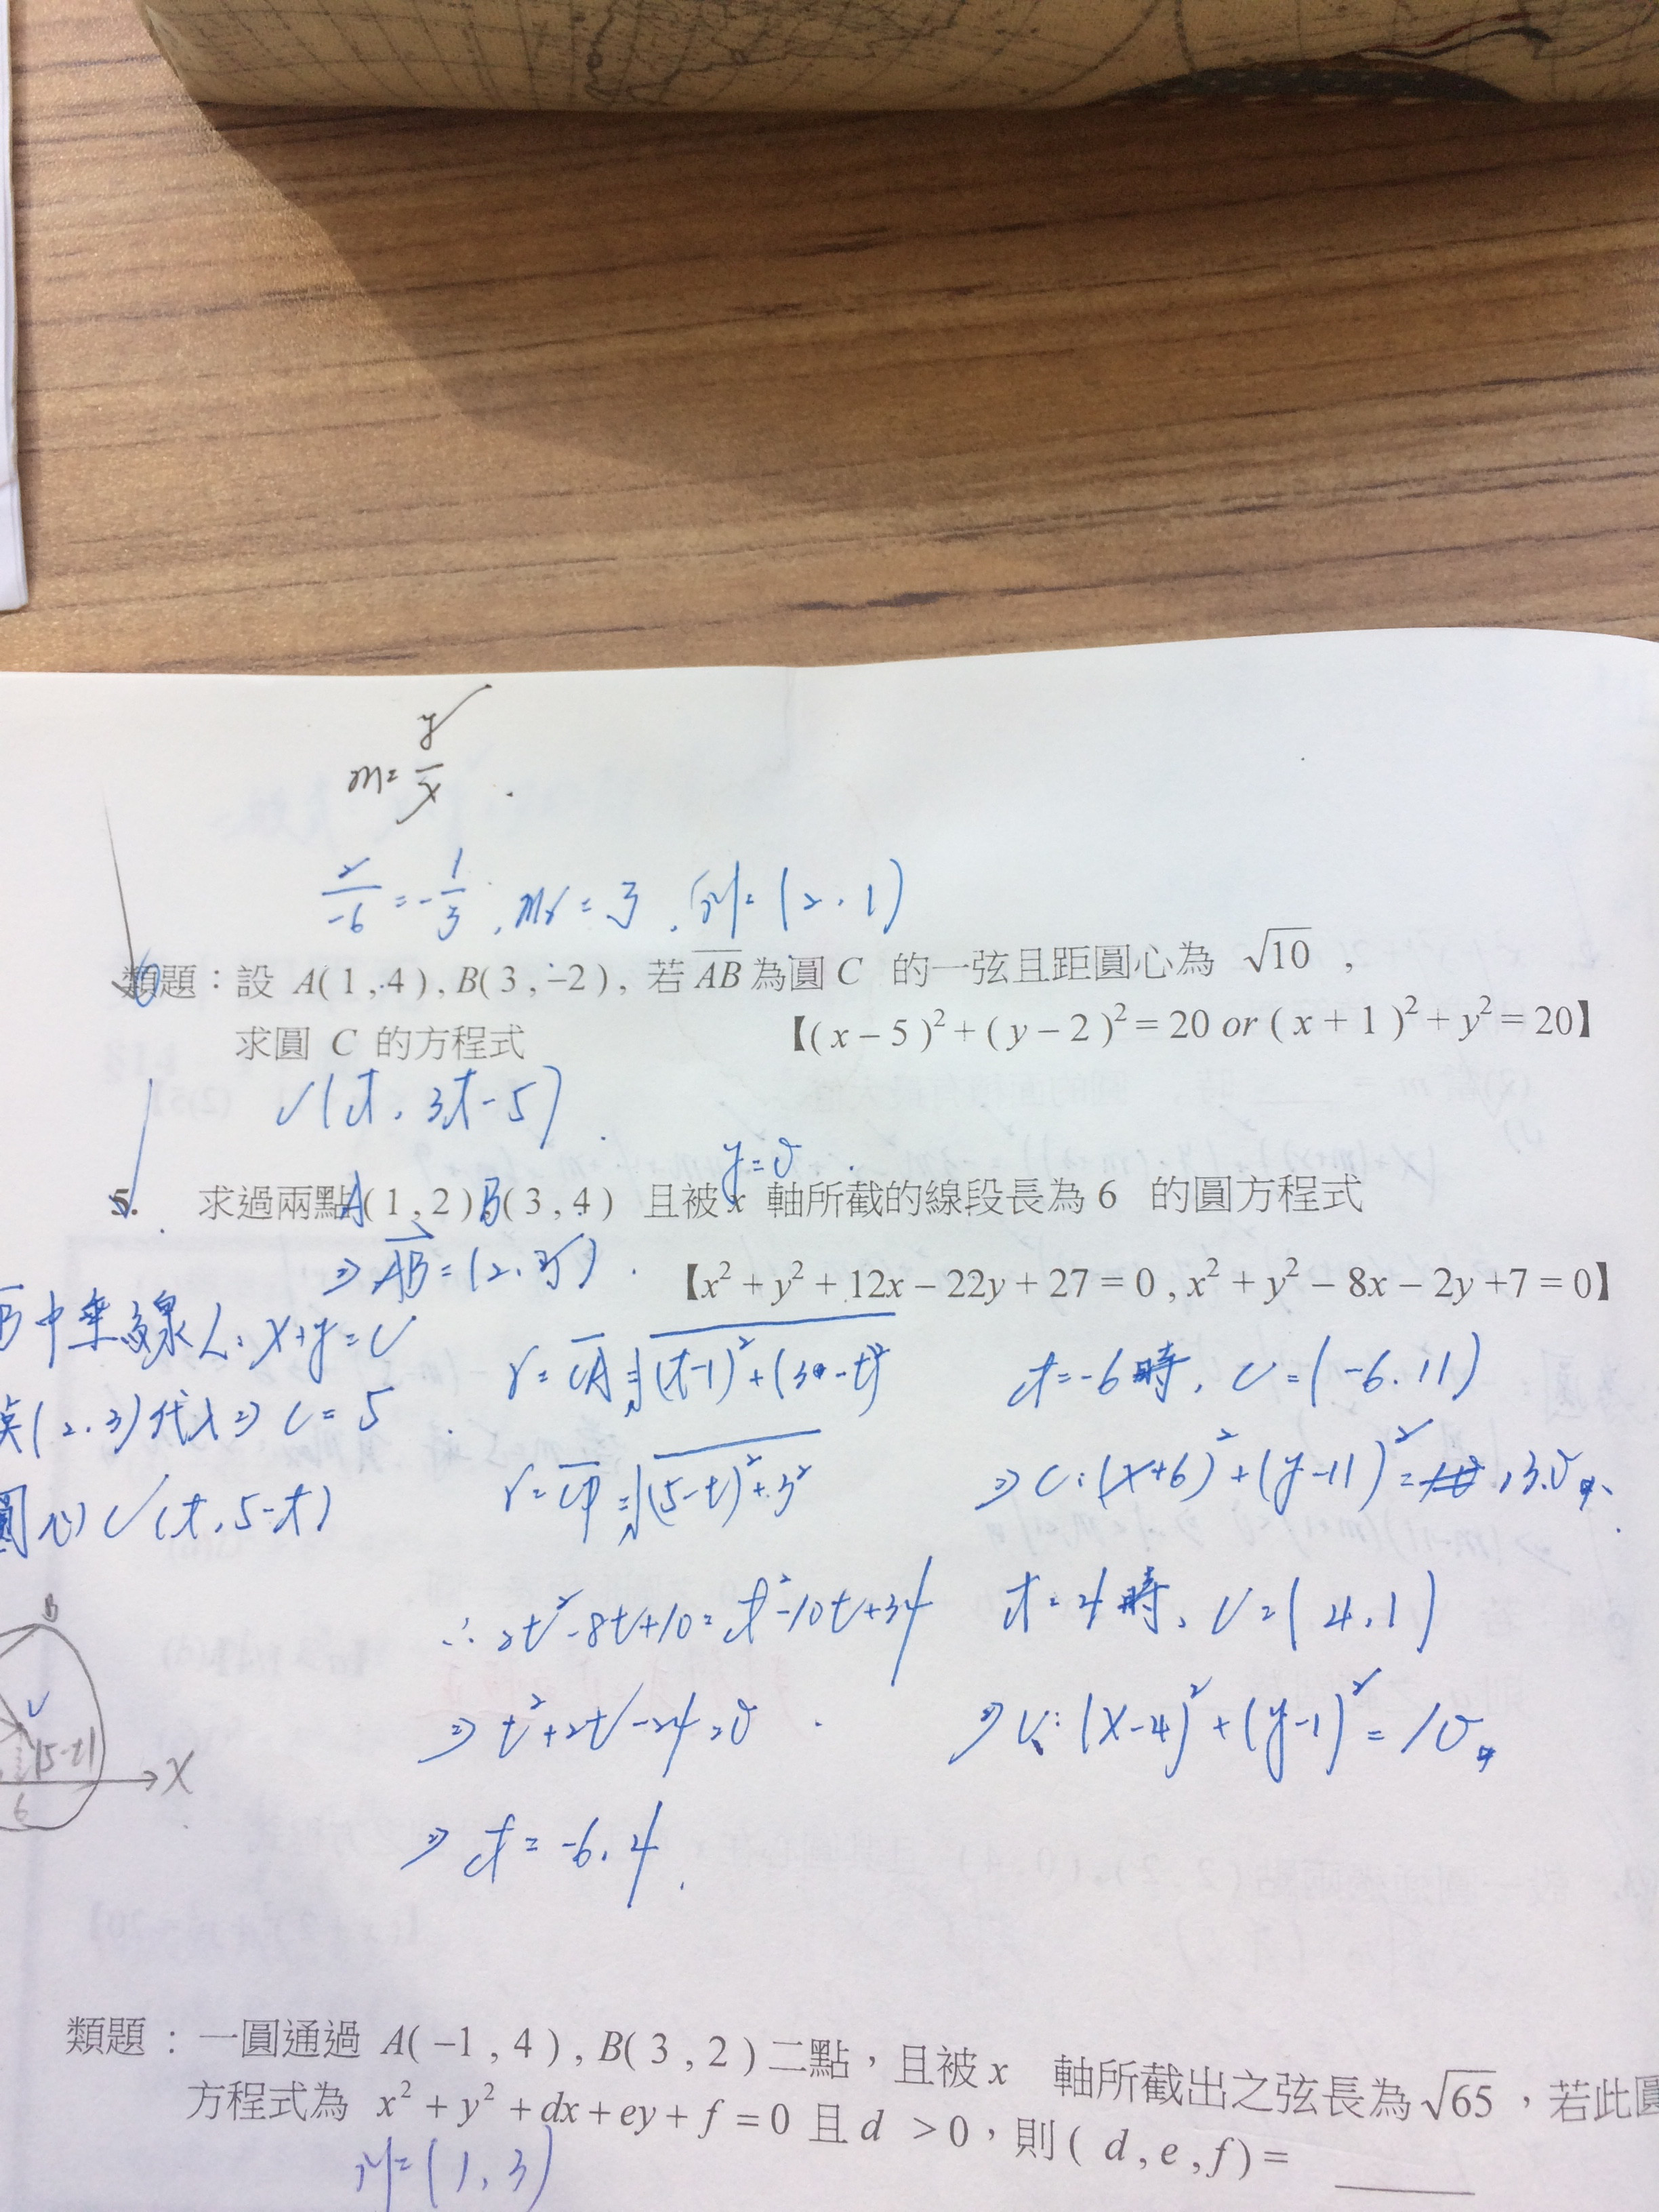 m = y/x
2/-6 = -1/3, m_r = 3, M = (2, 1)
類題：設 A( 1 , 4 ) , B( 3 , −2 ) , 若 AB 為圓 C 的一弦且距圓心為 √10 ,
求圓 C 的方程式 【( x − 5 )² + ( y − 2 )² = 20 or ( x + 1 )² + y² = 20】
C(t, 3t-5)
y=0
5. 求過兩點 A( 1 , 2 ) B( 3 , 4 ) 且被 x 軸所截的線段長為 6 的圓方程式
⇒ AB = (2, 2)
【x² + y² + 12x − 22y + 27 = 0 , x² + y² − 8x − 2y +7 = 0】
中垂線 L: x+y=C
(2,3)代入⇒ C=5
圓心 C(t, 5-t)
r = CA = √((t-1)²+(3-t)²)
r = CP = √((5-t)²+3²)
∴ 2t²-8t+10 = t²-10t+34
⇒ t²+2t-24=0
⇒ t = -6, 4
t=-6時, C=(-6, 11)
⇒ C: (x+6)²+(y-11)² = 130
t=4時, C=(4, 1)
⇒ C: (x-4)²+(y-1)² = 10
B
C
|5-t|
X
6
類題：一圓通過 A( −1 , 4 ) , B( 3 , 2 ) 二點，且被 x 軸所截出之弦長為 √65 ，若此圓
方程式為 x² + y² + dx + ey + f = 0 且 d > 0，則 ( d , e , f ) =
M = (1, 3)